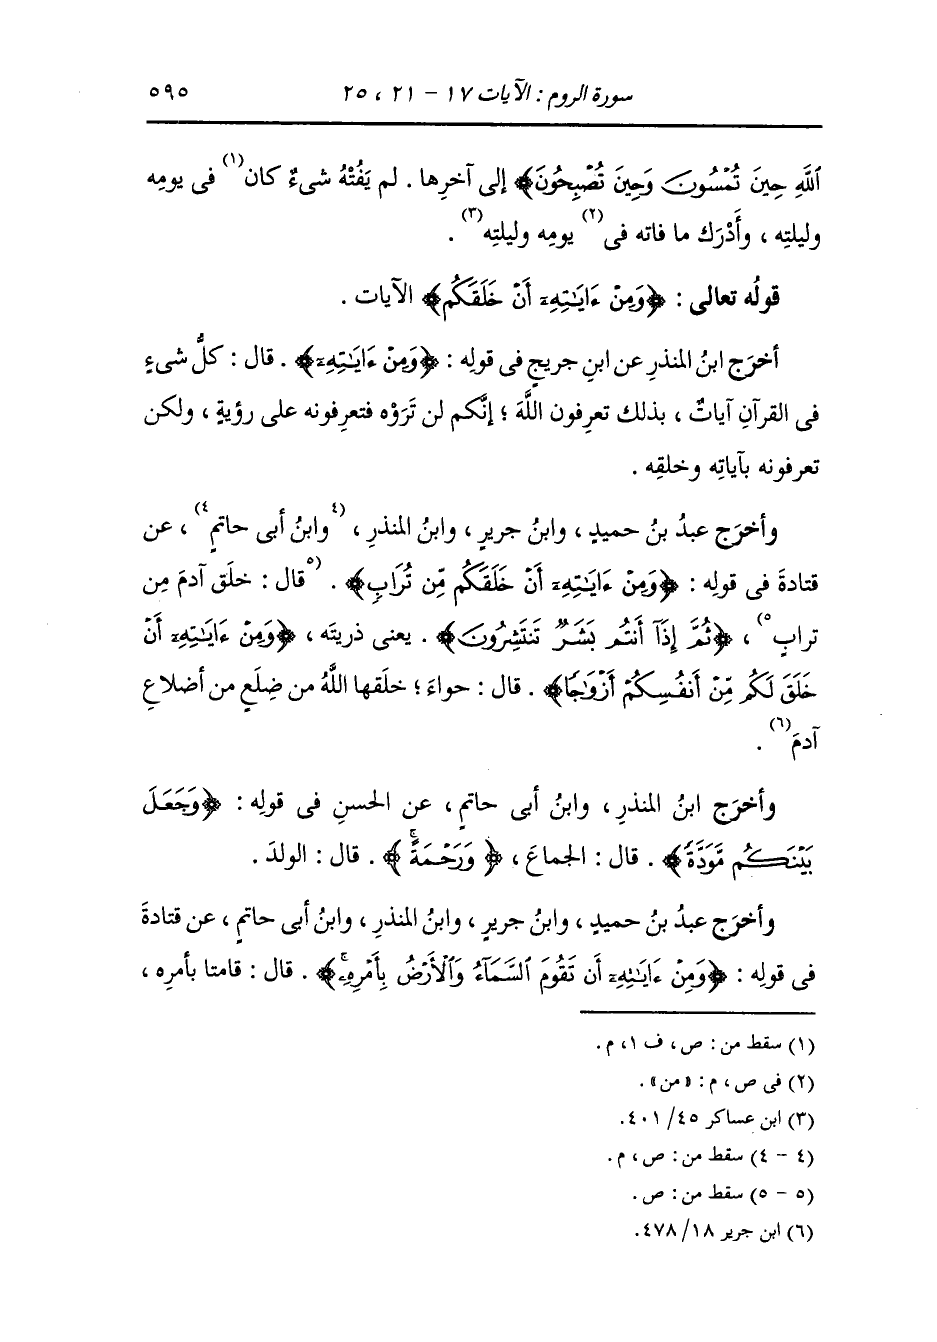 سورة الروم : الآيات ١٧ – ٢١ ، ٢٥ ٥٩٥
ٱللَّهِ حِينَ تُمْسُونَ وَحِينَ تُصْبِحُونَ﴾ إلى آخرِها . لم يَفُتْهُ شىءٌ كان(١) فى يومِه
وليلتِه ، وأَدْرَك ما فاته فى(٢) يومِه وليلتِه(٣) .
قولُه تعالى : ﴿وَمِنْ ءَايَٰتِهِۦٓ أَنْ خَلَقَكُم﴾ الآيات .
أخرَج ابنُ المنذرِ عن ابنِ جريجٍ فى قولِه : ﴿وَمِنْ ءَايَٰتِهِۦٓ﴾ . قال : كلُّ شىءٍ
فى القرآنِ آياتٌ ، بذلك تعرِفون اللَّهَ ؛ إنَّكم لن تَرَوْه فتعرِفونه على رؤيةٍ ، ولكن
تعرفونه بآياتِه وخلقِه .
وأخرَج عبدُ بنُ حميدٍ ، وابنُ جريرٍ ، وابنُ المنذرِ ، (٤وابنُ أبى حاتمٍ٤) ، عن
قتادةَ فى قولِه : ﴿وَمِنْ ءَايَٰتِهِۦٓ أَنْ خَلَقَكُم مِّن تُرَابٍ﴾ . (٥قال : خلَق آدمَ مِن
ترابٍ٥) ، ﴿ثُمَّ إِذَآ أَنتُم بَشَرٌ تَنتَشِرُونَ﴾ . يعنى ذريتَه ، ﴿وَمِنْ ءَايَٰتِهِۦٓ أَنْ
خَلَقَ لَكُم مِّنْ أَنفُسِكُمْ أَزْوَٰجًا﴾ . قال : حواءَ ؛ خلَقها اللَّهُ من ضِلَعٍ من أضلاعِ
آدمَ(٦) .
وأخرَج ابنُ المنذرِ ، وابنُ أبى حاتمٍ ، عن الحسنِ فى قولِه : ﴿وَجَعَلَ
بَيْنَكُم مَّوَدَّةً﴾ . قال : الجماعَ ، ﴿وَرَحْمَةً ۚ﴾ . قال : الولدَ .
وأخرَج عبدُ بنُ حميدٍ ، وابنُ جريرٍ ، وابنُ المنذرِ ، وابنُ أبى حاتمٍ ، عن قتادةَ
فى قولِه : ﴿وَمِنْ ءَايَٰتِهِۦٓ أَن تَقُومَ ٱلسَّمَآءُ وَٱلْأَرْضُ بِأَمْرِهِۦ ۚ﴾ . قال : قامتا بأمرِه ،
(١) سقط من : ص ، ف ١ ، م .
(٢) فى ص ، م : « من » .
(٣) ابن عساكر ٤٥/ ٤٠١ .
(٤ – ٤) سقط من : ص ، م .
(٥ – ٥) سقط من : ص .
(٦) ابن جرير ١٨/ ٤٧٨ .